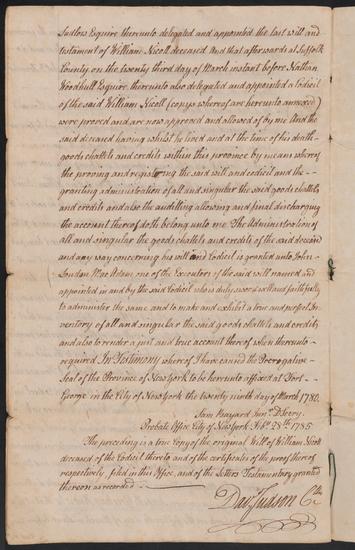 Ludlow Esquire thereunto delegated and appointed the last will and
testament of William Nicoll deceased And that afterwards at Suffolk
County on the twenty third day of March instant before Nathan
Woodhull Esquire thereunto also delegated and appointed a Codicil
of the said William Nicoll (copys whereof are hereunto annexed)
were proved and are now approved and allowed of by me And the
said deceased having whilst he lived and at the time of his death
goods chattels and credits within this province by means whereof
the proving and registring the said will and codicil and the
granting administration of all and singular the said goods chattels
and credits and also the auditing allowing and final discharging
the account thereof doth belong unto me. The Administration of
all and singular the goods chattels and credits of the said deceased
and any way concerning his will and Codicil is granted unto John
Loudon MacAdam, one of the Executors of the said will named and
appointed in and by the said Codicil who is duly sworn well and faithfully
to administer the same and to make and exhibit a true and perfect In-
ventory of all and singular the said goods chattels and credits
and also to render a just and true account thereof when thereunto
required In Testimony whereof I have caused the Prerogative
Seal of the Province of New York to be hereunto affixed at Fort
George in the City of New York the twenty ninth day of March 1780.
Sam Bayard Junr. D Secry.
Probate Office City of New York Feby. 28th. 1785
The preceding is a true Copy of the original Will of William Nicoll
deceased of the Codicil thereto and of the certificates of the proof thereof
respectively, filed in this Office, and of the Letters Testamentary granted
thereon as recorded
Davd. Judson Clk